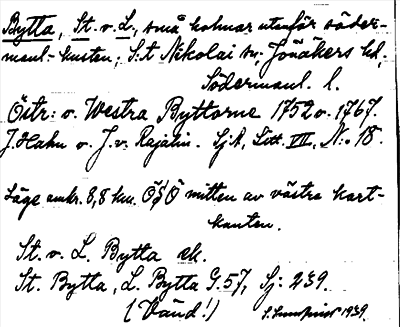 Bytta, St. o. L., små holmar utanför söder-
manl.-kusten; S:t Nikolai sn; Jönåkers hd,
Södermanl. l.
Östr: o. Westra Byttorne 1752 o. 1767.
J. Hahn o. J. v. Rajalin. SjA, Litt. VII, No 18.
Läge omkr. 8,8 km. ÖSÖ mitten av västra kart-
kanten.
St. o. L. Bytta ek.
St. Bytta, L. Bytta G. 57, Sj: 239.
(Vänd!) 1939.